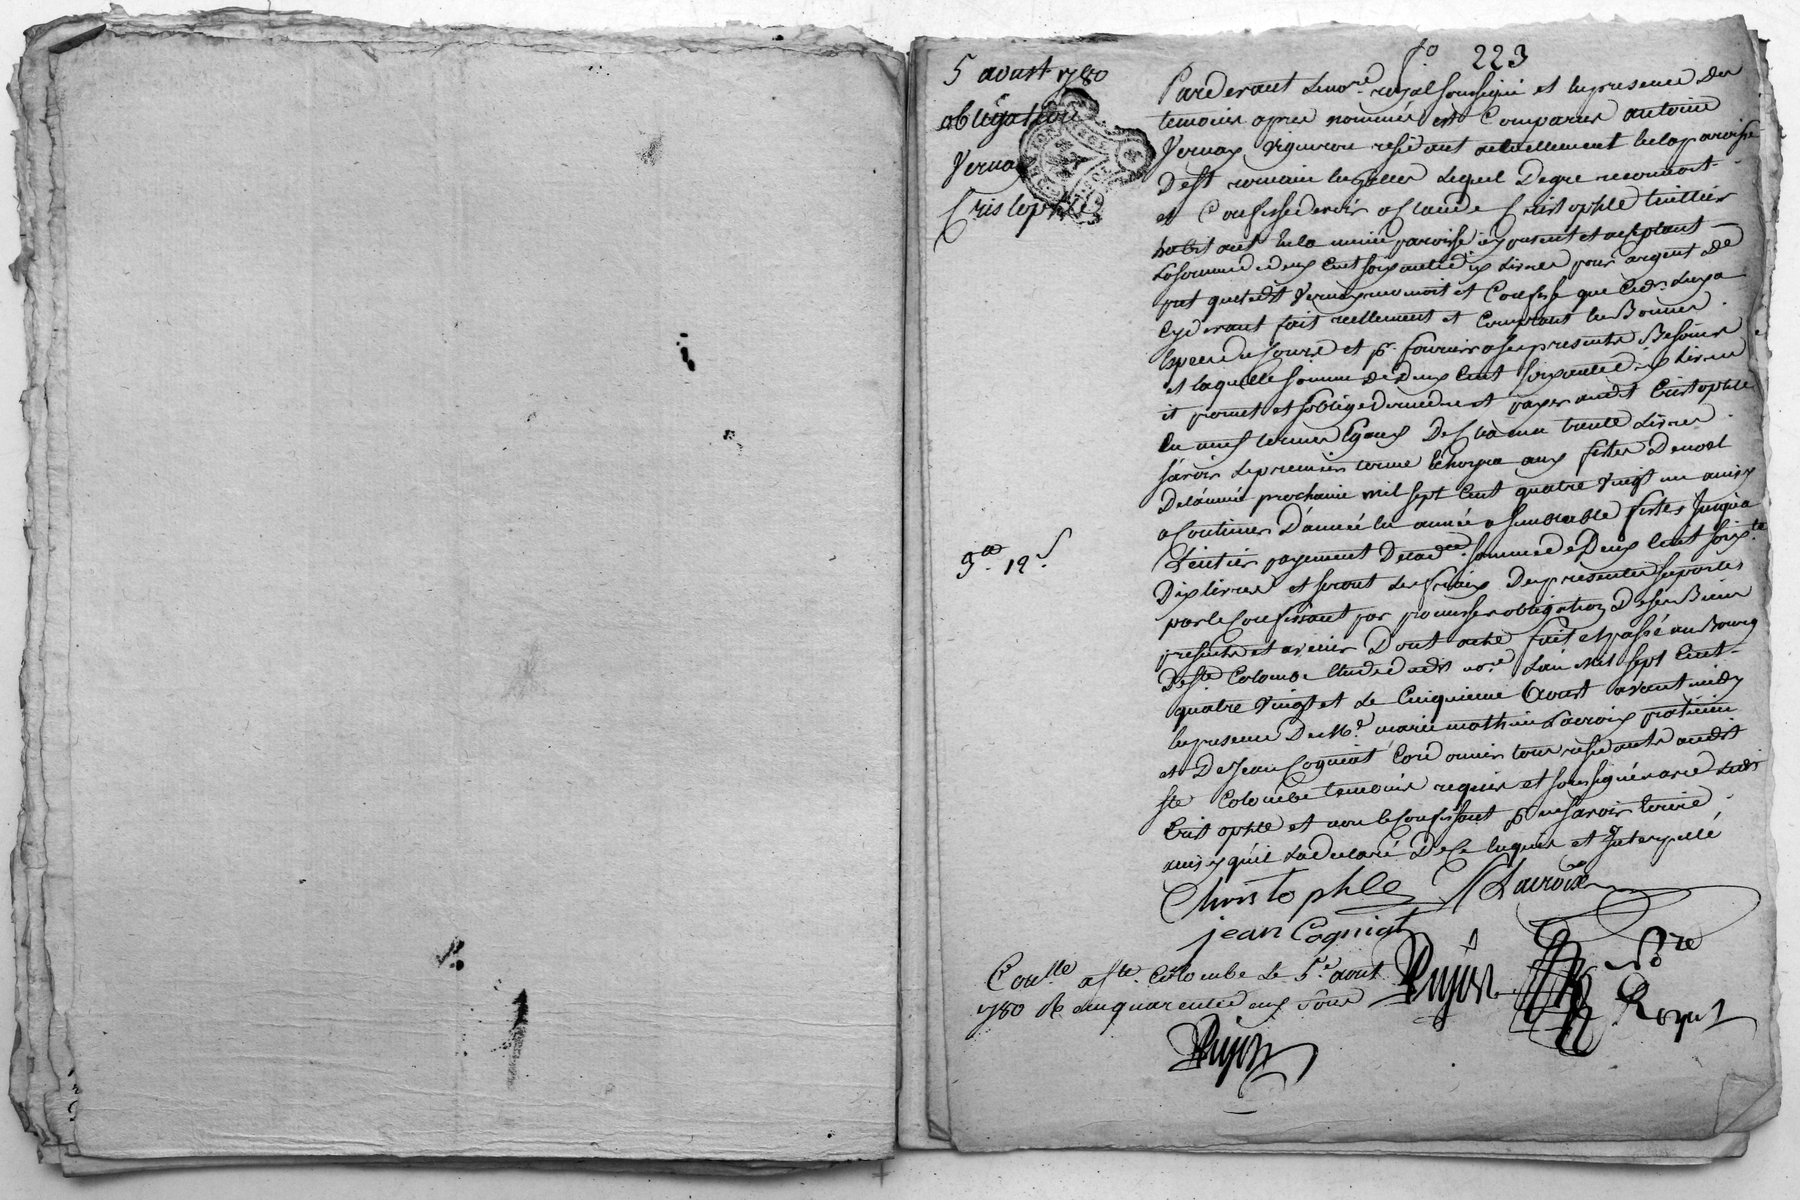 fo 223
5 aoust 1780
obligation
Vernay
Cristophle
3# 12s
Pardevant Le nore royal soussigné et en presence des
temoins apres nommés est Comparus antoine
Vernay vigneron residant actuellement en la paroisse
De st romain en Lequel De gre reconnoit
et Confesse devoir a Claude Christophle
habitant en la meme paroisse icy present et acceptant
La somme de deux Cent soixante dix Livres pour argent de
pret que led Vernay reconnoit et Confesse que Led. Luy a
Cydevant fait reellement et Comptant en Bonnes
Especes de Cours et pr fournir a ses presents Besoins
et laquelle somme de Deux Cent soixante dix Livres
it promet et s'oblige de rendre et payer audt Cristophle
En neuf termes Egaux De Chacun trente Livres
sávoir Le premier terme Echoyra aux festes De noel
De L'année prochaine mil sept Cent quatre vingt un ainsy
a Continuer D'année En année a semblable festes Jusqu'a
L'entier payement De lade somme de Deux Cent soixte
Dix livres et seront Les fraix Des presentes suportés
par le Confessant par promesse obligation De ses Biens
presents et avenir Dont acte fait et passé au Bourg
De ste Colombe Etude dudt nore L'an Mil sept Cent
quatre vingt et Le Cinquieme Aoust avant midy
En presence De Mr marie mathieu Lacroix praticien
et De Jean Cogniat Cordonnier tous residants audit
ste Colombe temoins requis et soussignés avec Ledt
Cristophle et non le Confessant pr ne savoir Ecrire
ainsy qu'il La declaré De Ce Enquis et Interpellé
Christophle Lacroix
jean Cogniat
Pujon nore Royal
Conlle a Ste Colombe Le 5e aout
1780 R quarente deux sous
Pujon